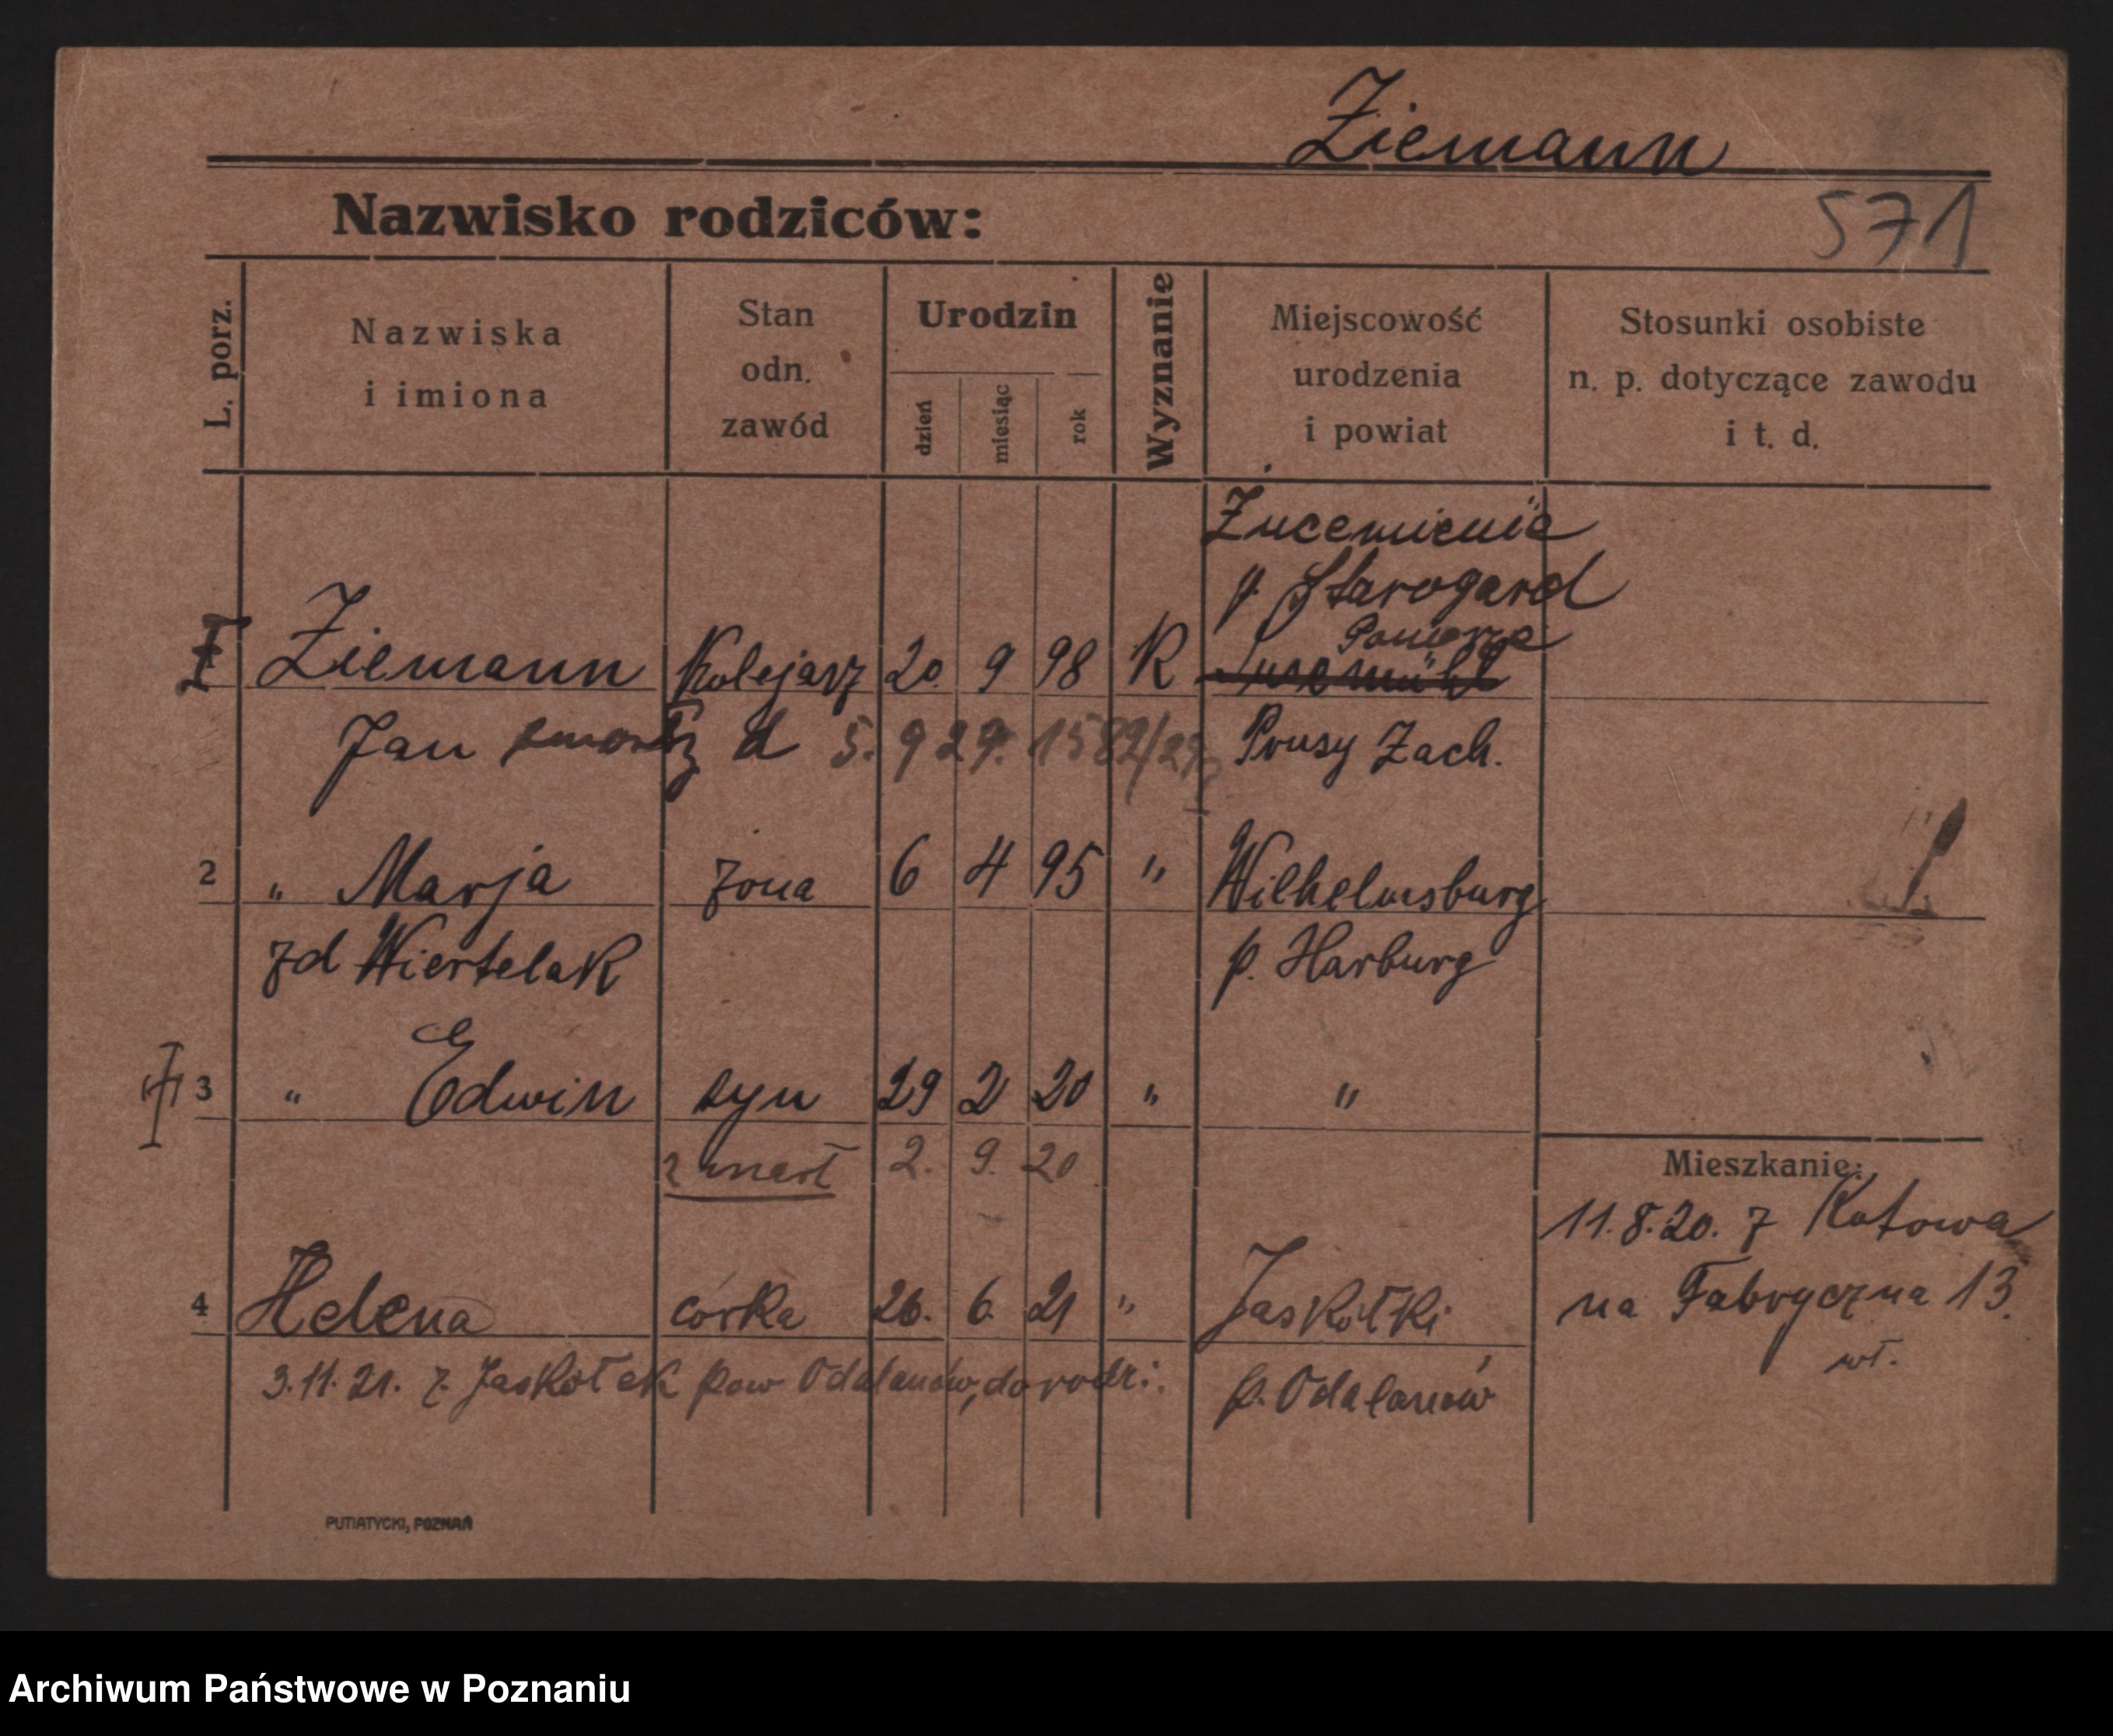 Ziemann
Nazwisko rodziców:
571
L. porz.
Nazwiska
i imiona
Stan
odn.
zawód
Urodzin
dzień
miesiąc
rok
Wyznanie
Miejscowość
urodzenia
i powiat
Stosunki osobiste
n. p. dotyczące zawodu
i t. d.
p. Starogard
Pomorze
Ziemann Kolejarz 20. 9 98 R
Jan d 5. 9 29. 1582/29 Prusy Zach.
2 „ Marja żona 6 4 95 „ Wilhelmsburg
zd Wiertelak p. Harburg
3 „ Edwin syn 29 2 20 „ „
zmarł 2. 9. 20
Mieszkanie:
11.8.20. z Kotowa
na Fabryczna 13.
wł.
4 Helena córka 26. 6. 21 „ Jaskółki
3.11.21. z Jaskółek pow Odolanów, do rodzi. p. Odolanów
PUTIATYCKI, POZNAŃ
Archiwum Państwowe w Poznaniu